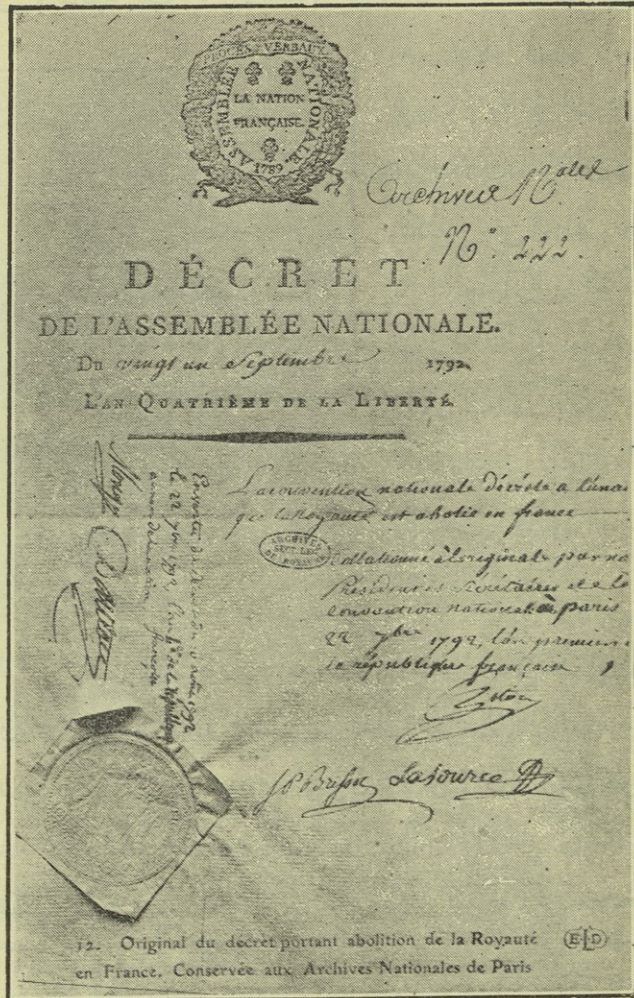 PROCÈS VERBAUX
ASSEMBLÉE NATIONALE.
LA NATION
FRANÇAISE.
1789
Archives N.ales
N.° 222.
DÉCRET
DE L'ASSEMBLÉE NATIONALE.
Du vingt un Septembre 1792.
L'AN QUATRIÈME DE LA LIBERTÉ.
La convention nationale décrète a
que la Royauté est abolie en france
ARCHIVES
Collationné à l'original par
Président et Sécrétaires de la
convention nationale à paris
22 7bre 1792, l'an premier
la république françoise
Lasource
12. Original du décret portant abolition de la Royauté
en France. Conservée aux Archives Nationales de Paris
ELD